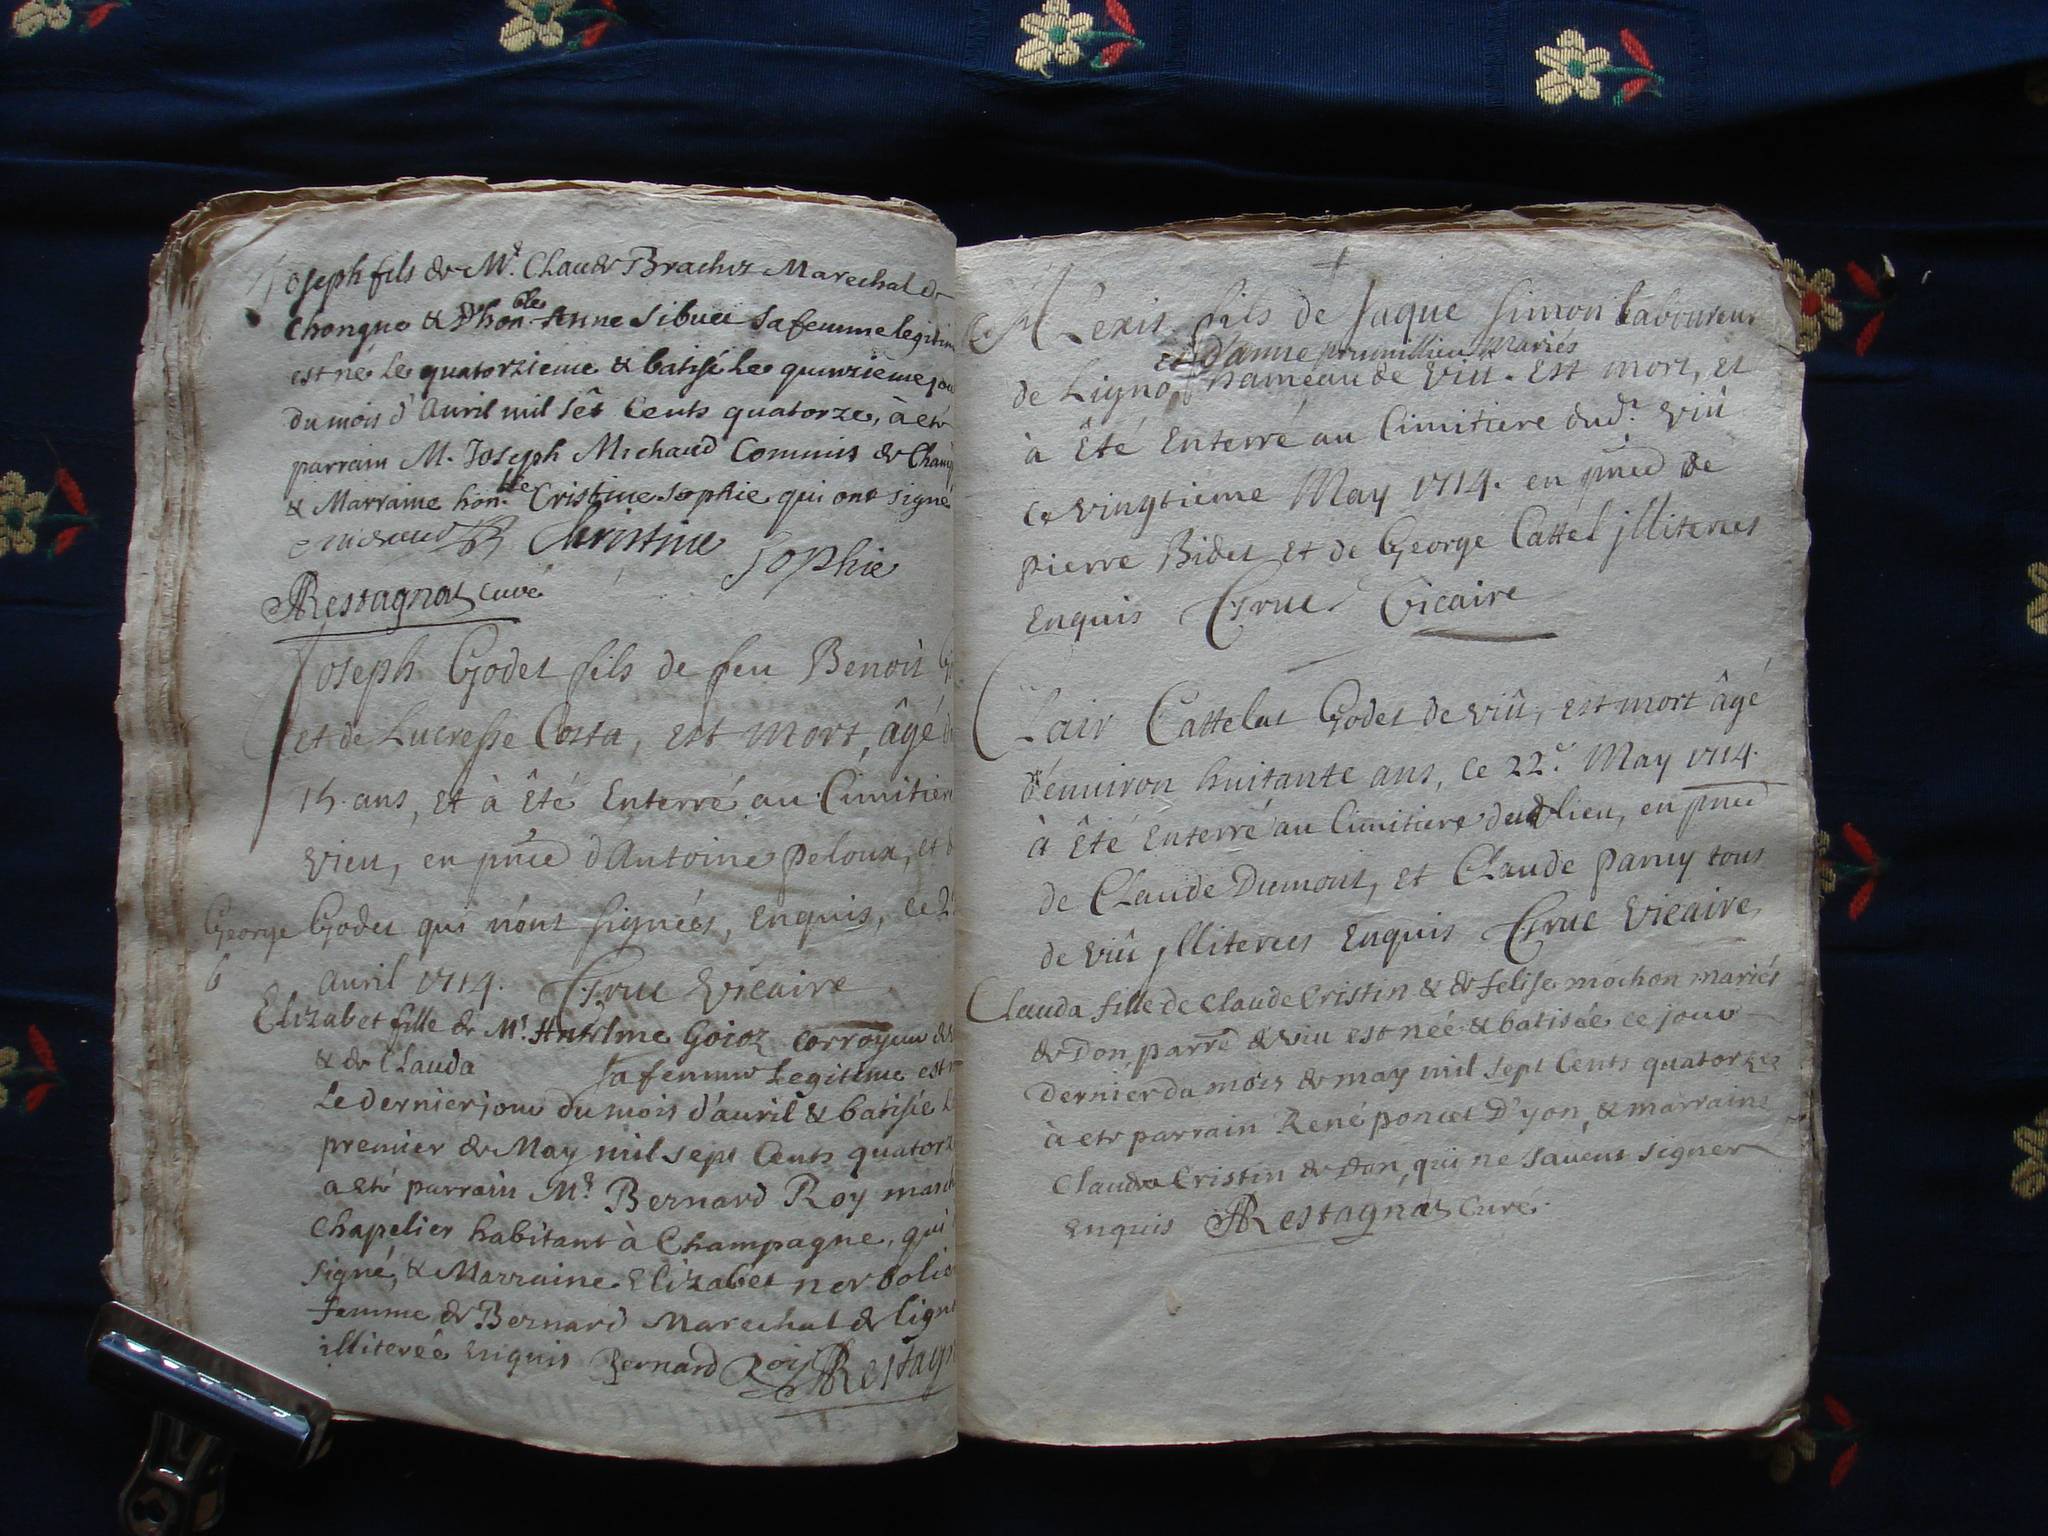 Joseph fils de Mr. Claude Brachez Marechal de
Chongne & D'hon.ble Anne Sibuet sa femme legitim
est né le quatorzieme & batisé le quinzieme jou
du mois d'Avril mil sêt Cents quatorze, à eté
parrain M. Joseph Michaud Commis de Champ
& Marraine hon.ble Cristine Sophie qui ont signé
Christine
Sophie
Restagnat curé
Joseph Godet fils de feu Benoit
et de Lucresse Costa, est mort, âgé
15 ans, et à Êté Enterré au Cimitier
vieu, en pñce d'Antoine peloux, et d
George Godet qui n'ont signéés, Enquis, ce 2
6
avril 1714. Vicaire
Elizabet fille de Mr. Antelme Goioz corroyeur de
& de Clauda sa femme Legitime est n
Le dernier jour du mois d'avril & batisée L
premier de May mil sept Cents quatorz
a eté parrain Mr. Bernard Roy march
chapelier habitant à Champagne, qui
signé, & Marraine Elizabet
femme de Bernard Marechal de lign
illiterée enquis Bernard Roi Restagn
Alexis fils de Jaque Simon laboureur
et d'anne prumillieu Mariés
de Ligno hameau de viu. Est mort, et
à Êté Enterré au Cimitiere dud.t viû
ce vingtieme May 1714. en pñce de
pierre Bidet et de George Cattel jlliterees
Enquis Vicaire
Clair Cattelat Godet de viû, est mort âgé
d'environ huitante ans, ce 22.e May 1714.
à Êté Enterré au Cimitiere dud lieu, en pñce
de Claude Dumont, et Claude parny tous
de viû jlliterees Enquis Vicaire
Clauda fille de Claude Cristin & de felise mochon mariés
de Don parre de viu est née & batisée ce jour
dernier du mois de may mil sept Cents quatorze
à eté parrain René poncet D'yon, & marraine
Clauda Cristin de Don, qui ne savent signer
Enquis Restagnat Curé.